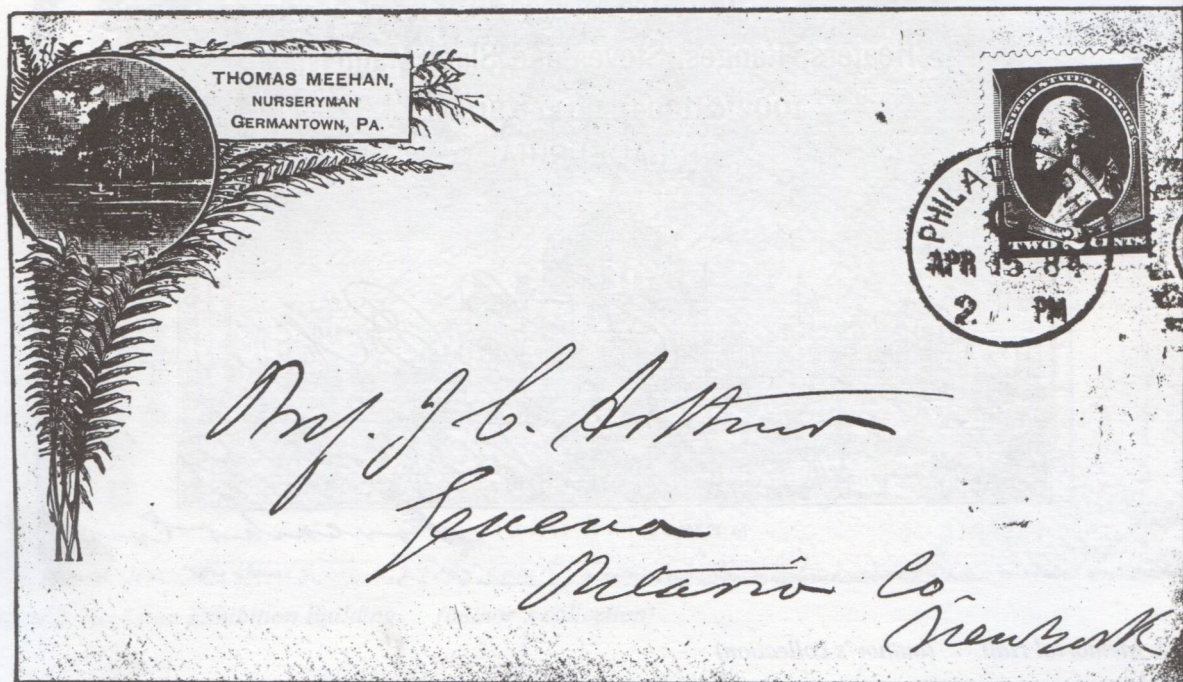 THOMAS MEEHAN,
NURSERYMAN
GERMANTOWN, PA.
UNITED STATES POSTAGE
TWO 2 CENTS
PHILADELPHIA
APR 15 84
2 PM
Prof. J. C. Arthur
Geneva
Ontario Co.
New York